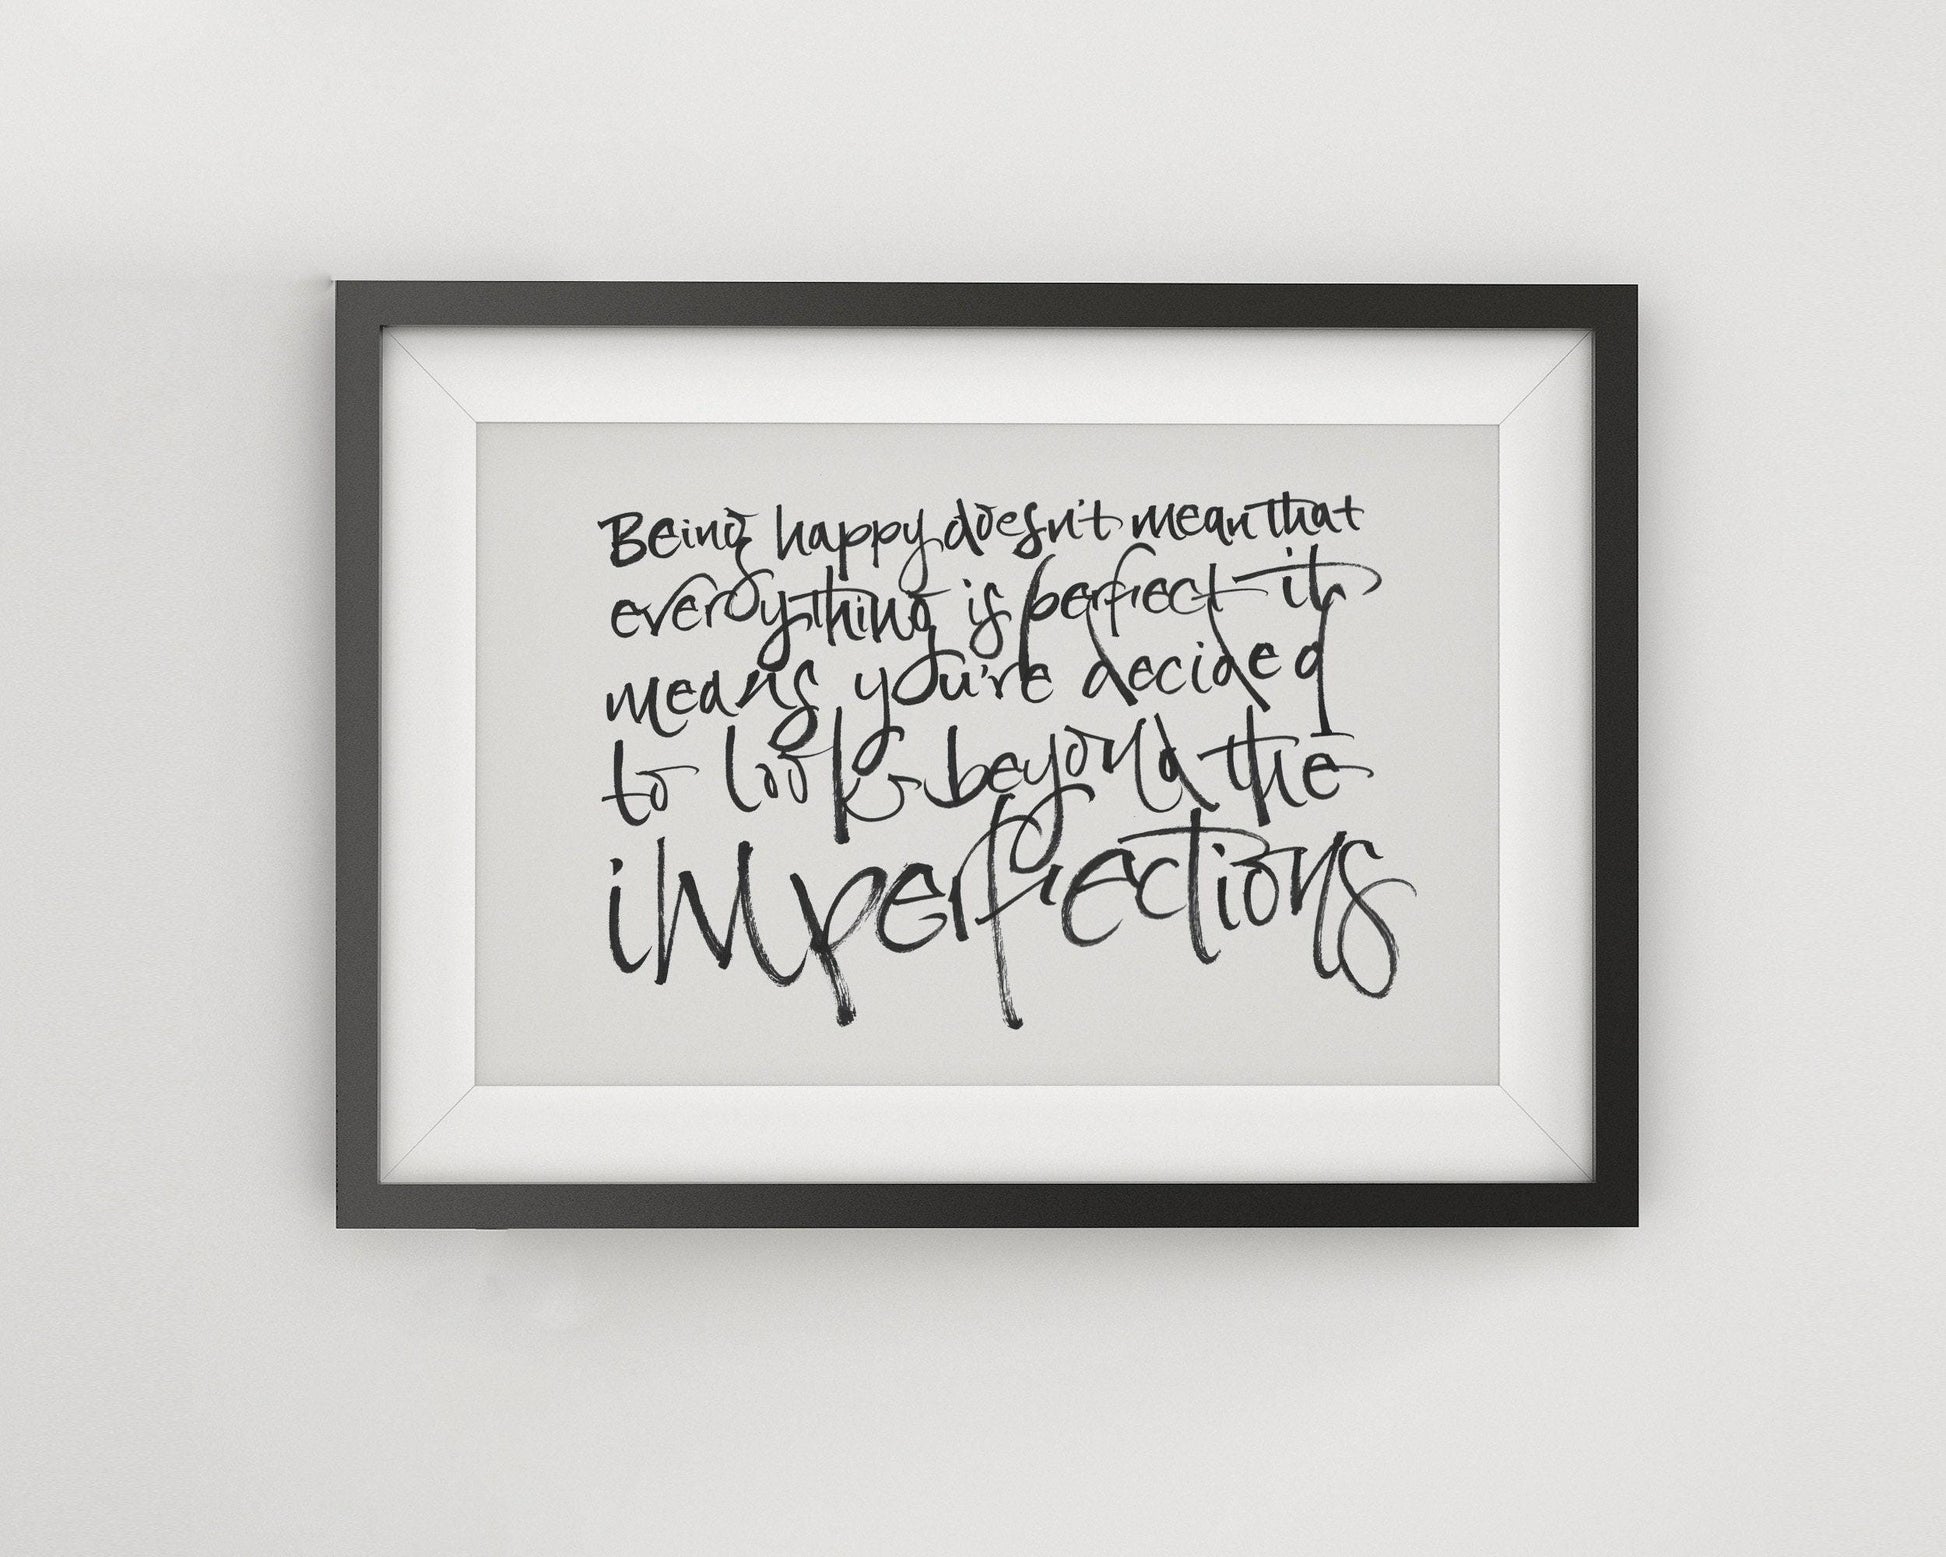 Being happy doesn't mean that
everything is perfect it
means you're decided
to look beyond the
imperfections